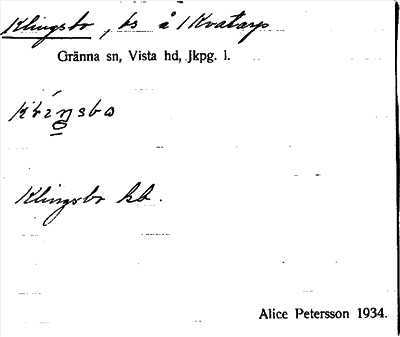 Klingsbo, hs å 1 Kvatarp
Gränna sn, Vista hd, Jkpg. l.
Klingsbo kb.
Alice Petersson 1934.